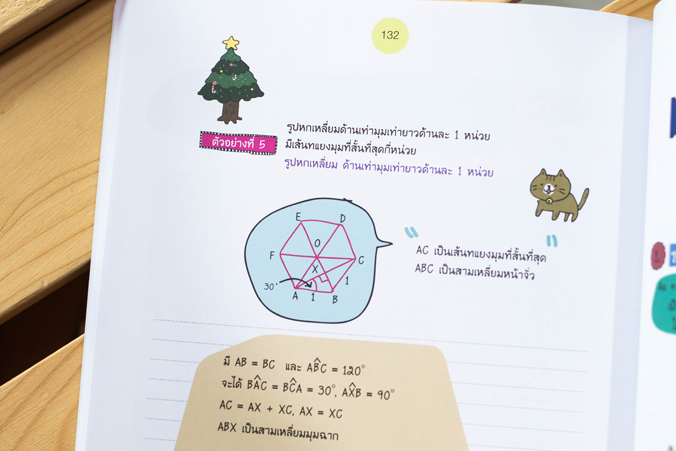 132
ตัวอย่างที่ 5
รูปหกเหลี่ยมด้านเท่ามุมเท่ายาวด้านละ 1 หน่วย
มีเส้นทแยงมุมที่สั้นที่สุดกี่หน่วย
รูปหกเหลี่ยม ด้านเท่ามุมเท่ายาวด้านละ 1 หน่วย
E D
O
F C
X
30°
1
A 1 B
" AC เป็นเส้นทแยงมุมที่สั้นที่สุด "
ABC เป็นสามเหลี่ยมหน้าจั่ว
มี AB = BC และ AB̂C = 120°
จะได้ BÂC = BĈA = 30°, AX̂B = 90°
AC = AX + XC, AX = XC
ABX เป็นสามเหลี่ยมมุมฉาก